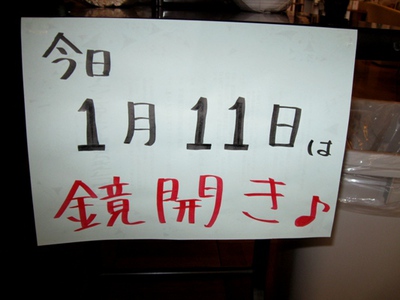 今日
1月11日は
鏡開き♪